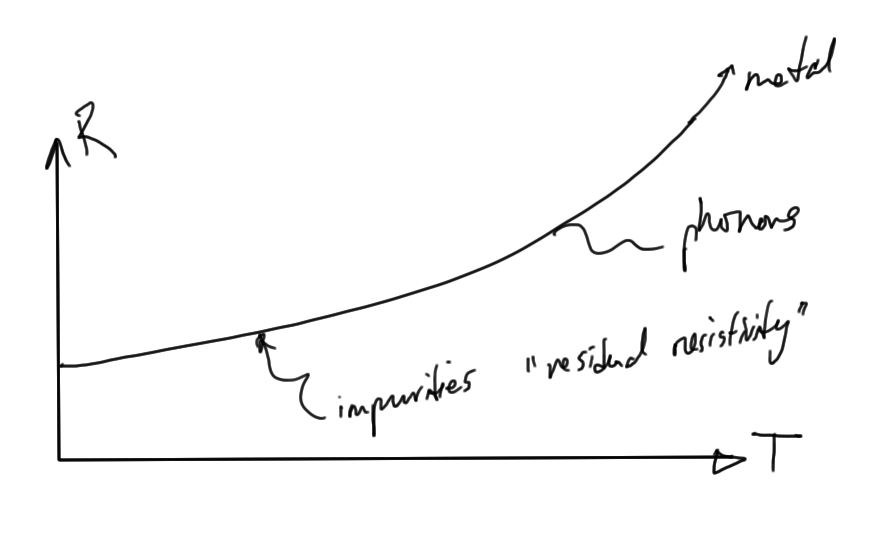 metal
R
phonons
impurities "residual resistivity"
T